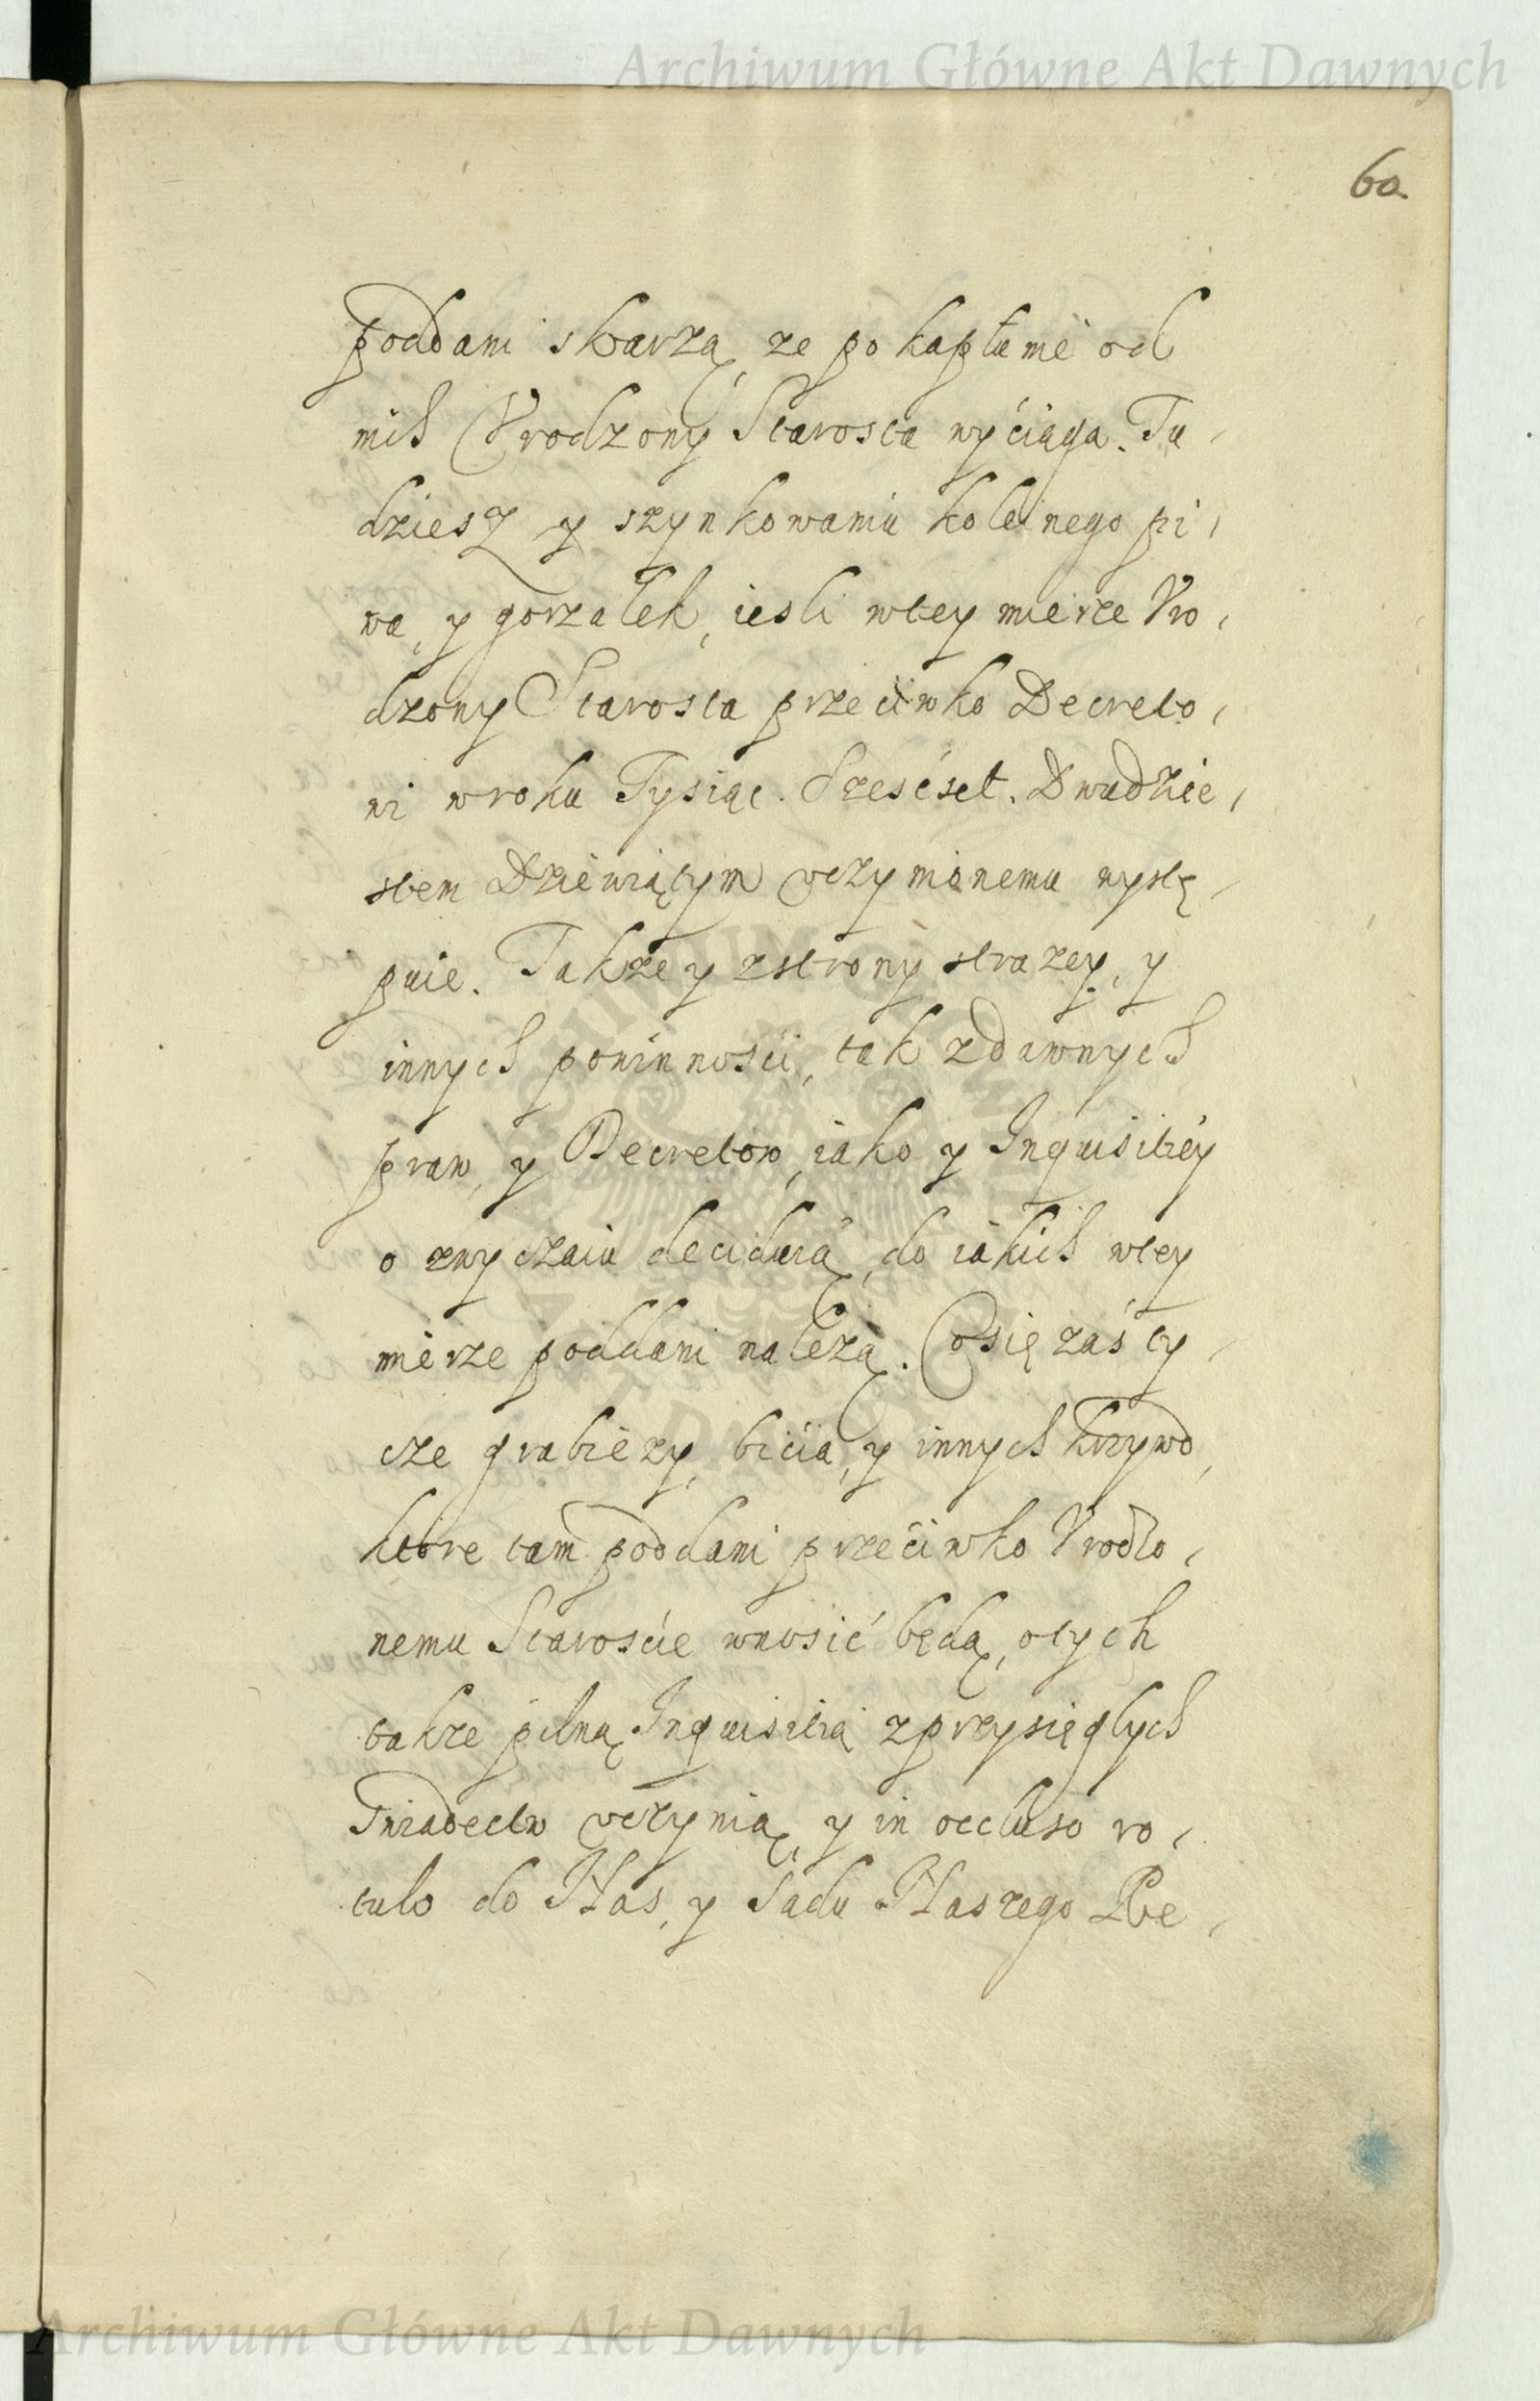 Archiwum Główne Akt Dawnych
60
poddani skarzą, ze po kapłunie od
nich Vrodzony Starosta wyciąga. Tu,
dziesz y szynkowaniu koleinego pi,
wa, y gorzałek, iesli wtey mierze Vro,
dzony Starosta przeciwko Decreto,
wi w roku Tysiąc. Szesćset. Dwudzie,
stem Dziewiątym vczynionemu wystę,
puie. Takze y zstrony strazey, y
innych powinnosci, tak zdawnych
praw, y Decretow, iako y Inquisitiey
o zwyczaiu deciduią, do iakich wtey
mierze poddani nalezą. Cosię zaś ty,
cze grabiezy, bicia, y innych krzywd,
ktore tam poddani przeciwko Vrodzo,
nemu Starosćie wnosić będą, otych
takze pilną Inquisitią zprzysięglych
Swiadectw vczynią, y in occluso ro,
tulo do Nas, y Sądu Naszego Re,
Archiwum Główne Akt Dawnych